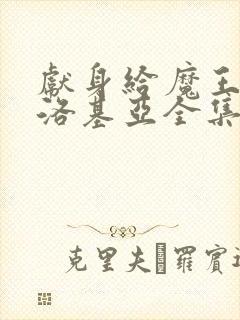 獻身給魔王
洛基亞全集
克里夫 羅賓